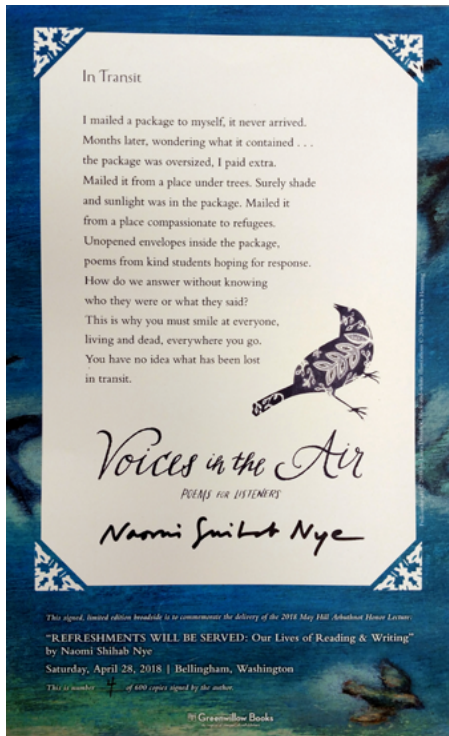 In Transit
I mailed a package to myself, it never arrived.
Months later, wondering what it contained . . .
the package was oversized, I paid extra.
Mailed it from a place under trees. Surely shade
and sunlight was in the package. Mailed it
from a place compassionate to refugees.
Unopened envelopes inside the package,
poems from kind students hoping for response.
How do we answer without knowing
who they were or what they said?
This is why you must smile at everyone,
living and dead, everywhere you go.
You have no idea what has been lost
in transit.
Voices in the Air
POEMS FOR LISTENERS
Naomi Shihab Nye
This signed, limited edition broadside is to commemorate the delivery of the 2018 May Hill Arbuthnot Honor Lecture:
“REFRESHMENTS WILL BE SERVED: Our Lives of Reading & Writing”
by Naomi Shihab Nye
Saturday, April 28, 2018 | Bellingham, Washington
This is number # of 600 copies signed by the author.
Greenwillow Books